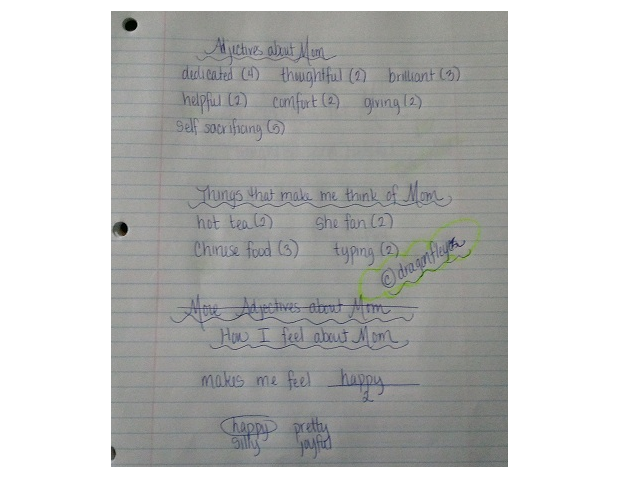 Adjectives about Mom
dedicated (4) thoughtful (2) brilliant (3)
helpful (2) comfort (2) giving (2)
self sacrificing (5)
Things that make me think of Mom
hot tea (2) she fan (2)
Chinese food (3) typing (2)
© dragonfleye
More Adjectives about Mom
How I feel about Mom
makes me feel happy
2
happy pretty
silly joyful